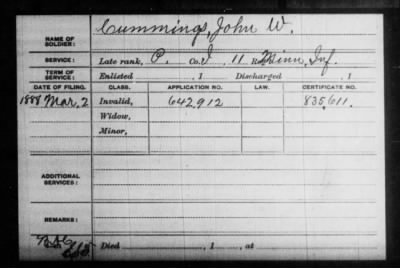 NAME OF SOLDIER: Cummings, John W.
SERVICE: Late rank, P. Co. I, 11 Reg. Minn. Inf.
TERM OF SERVICE: Enlisted , 1 Discharged , 1
DATE OF FILING. CLASS. APPLICATION NO. LAW. CERTIFICATE NO.
1888 Mar. 2 Invalid, 642,912 835,611.
Widow,
Minor,
ADDITIONAL SERVICES:
REMARKS:
Died , 1 , at